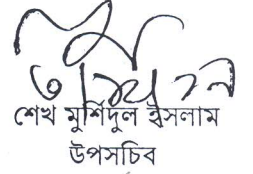 শেখ মুর্শিদুল ইসলাম
উপসচিব